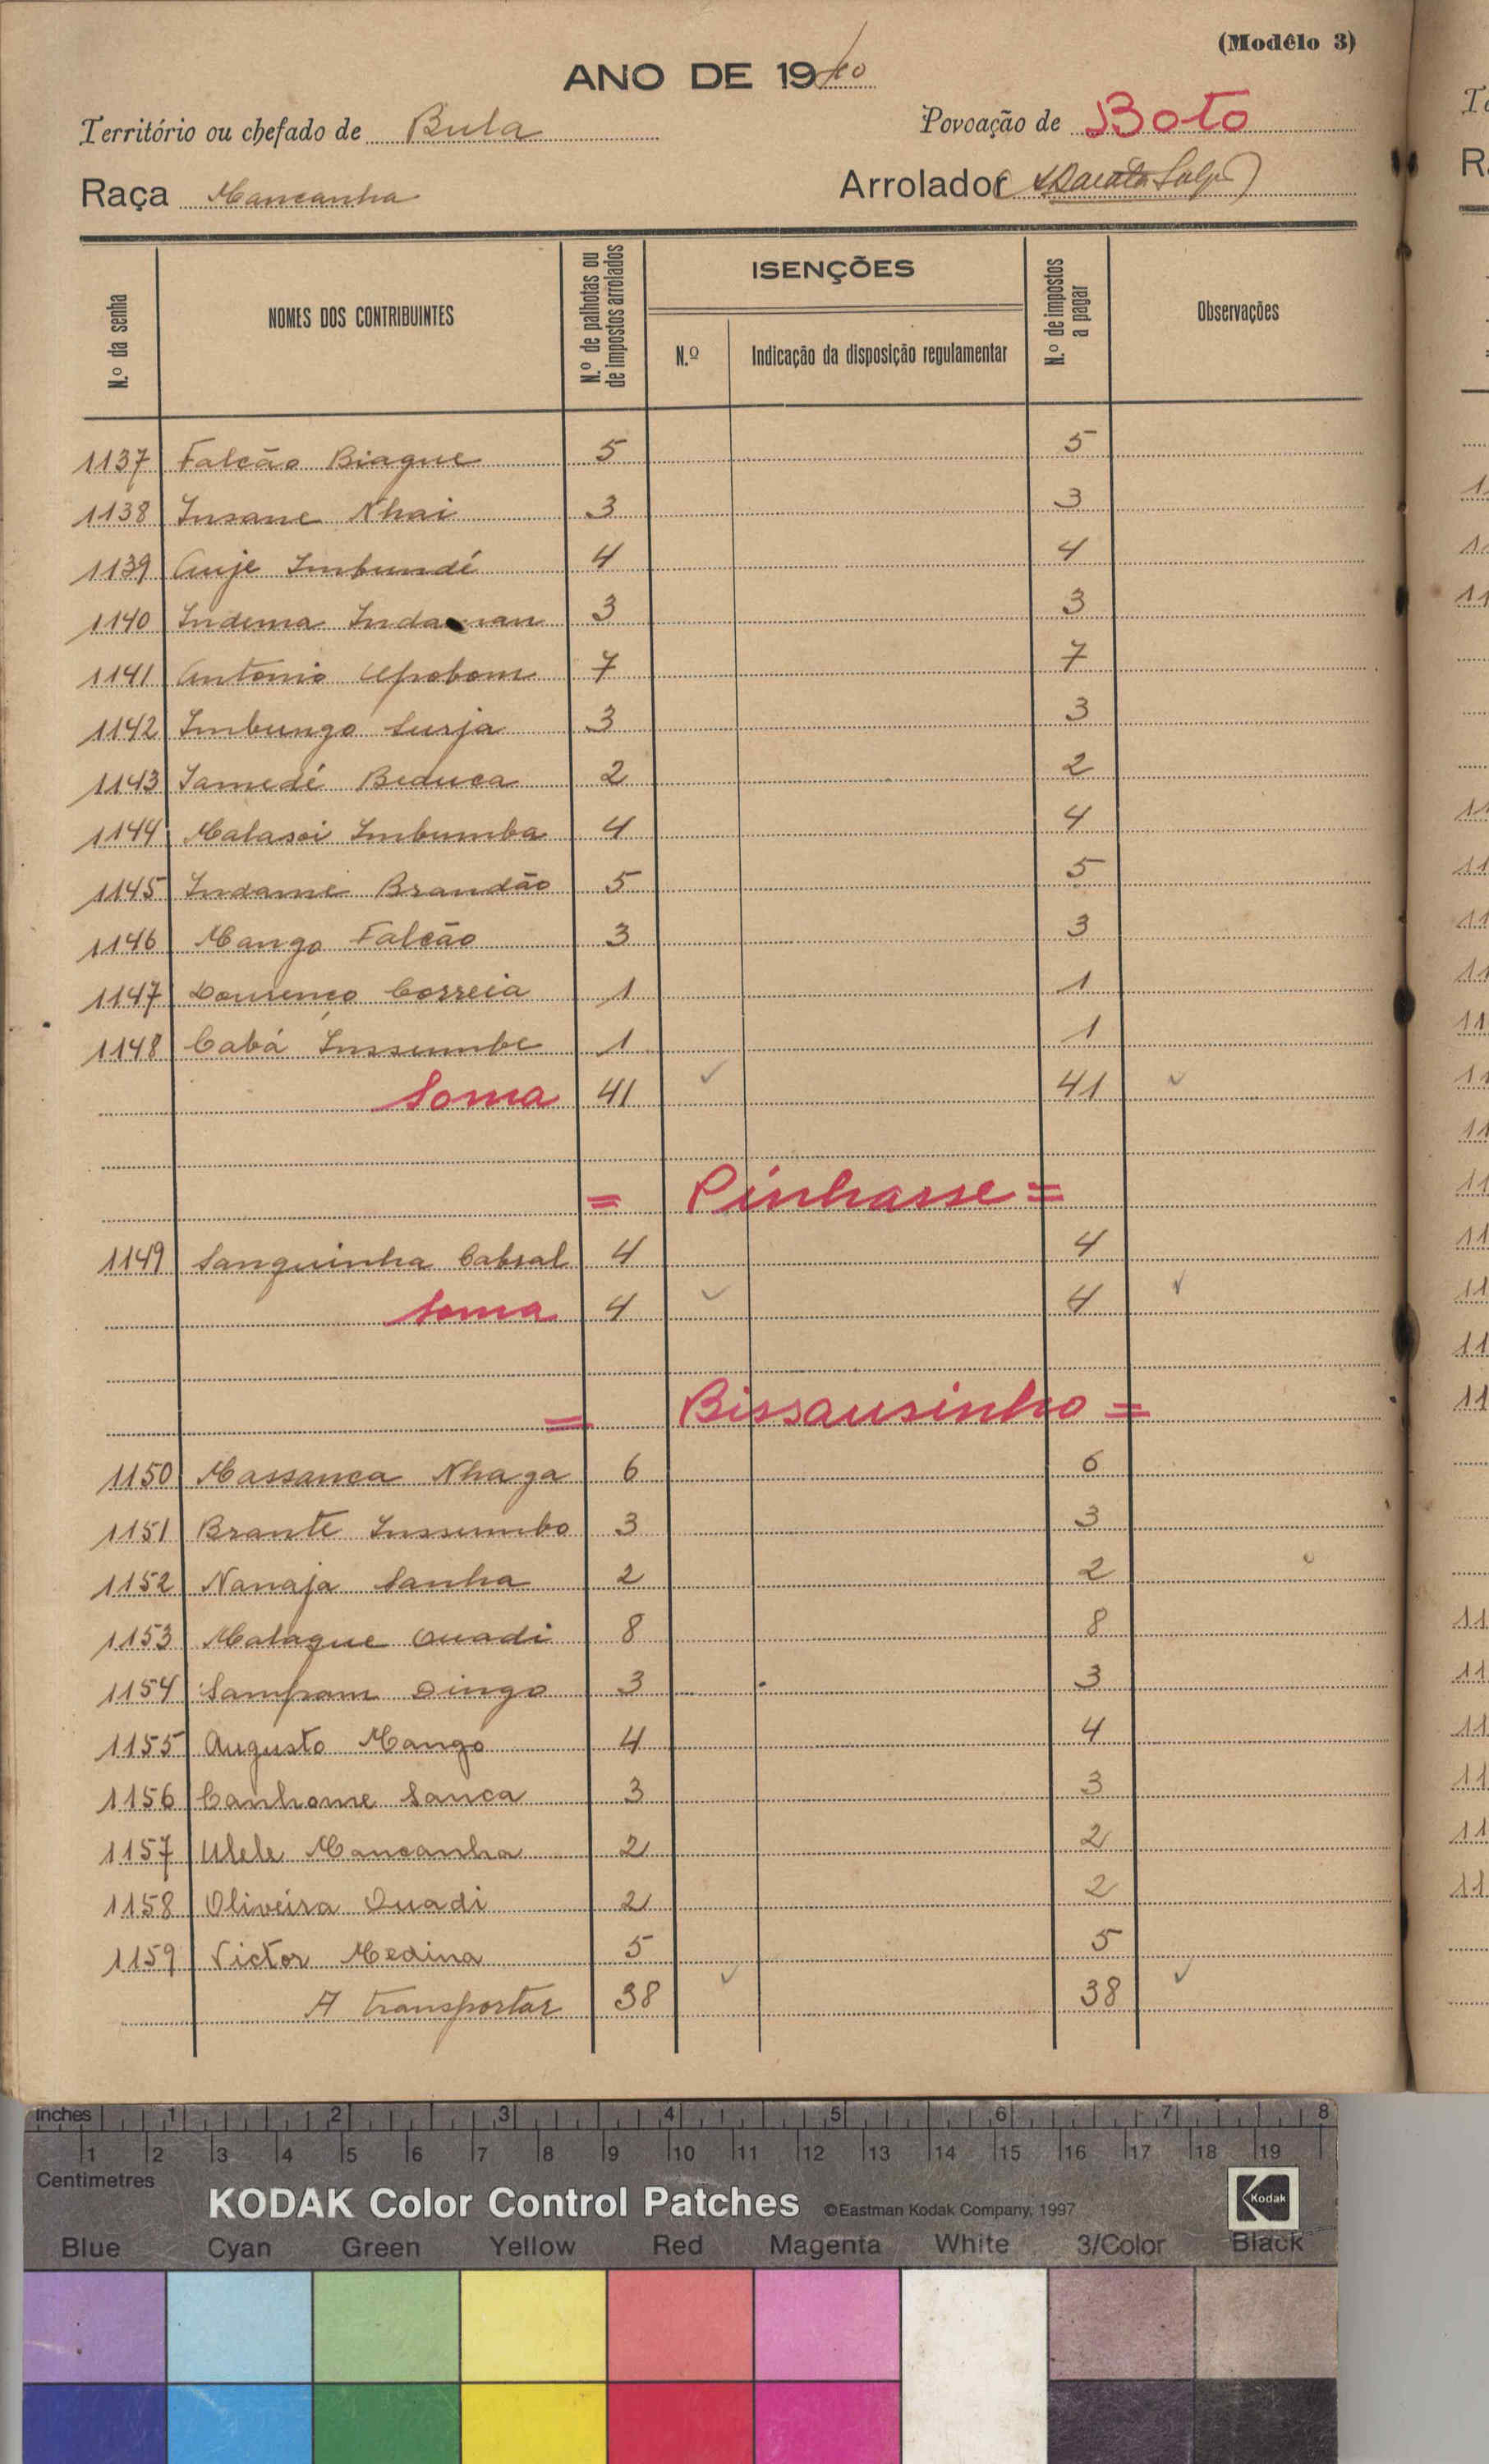 (Modêlo 3)
ANO DE 1940
Território ou chefado de Bula
Povoação de Boto
Raça Mancanha
Arrolador
N.º da senha
NOMES DOS CONTRIBUINTES
N.º de palhotas ou de impostos arrolados
ISENÇÕES
N.º
Indicação da disposição regulamentar
N.º de impostos a pagar
Observações
1137 Falcão Biague 5 5
1138 Insane Nhai 3 3
1139 Anje Imbundé 4 4
1140 Indema 3 3
1141 Antonio Upobom 7 7
1142 Imbungo Surja 3 3
1143 Samedé Beduca 2 2
1144 Malasoi Imbumba 4 4
1145 Indame Brandão 5 5
1146 Mango Falcão 3 3
1147 Lourenço Correia 1 1
1148 Cabá Inssumbe 1 1
Soma 41 41
= Pinhasse =
1149 Sanguinha Cabral 4 4
Soma 4 4
= Bissausinho =
1150 Massanca Nhaga 6 6
1151 Brante Inssumbo 3 3
1152 Nanaja Sanha 2 2
1153 Malague Quadi 8 8
1154 Sampam Dingo 3 3
1155 Augusto Mango 4 4
1156 Canhome Sanca 3 3
1157 Ulele Mancanha 2 2
1158 Oliveira Quadi 2 2
1159 Victor Medina 5 5
A transportar 38 38
inches 1 2 3 4 5 6 7 8
1 2 3 4 5 6 7 8 9 10 11 12 13 14 15 16 17 18 19
Centimetres
KODAK Color Control Patches ©Eastman Kodak Company, 1997 Kodak
Blue Cyan Green Yellow Red Magenta White 3/Color Black